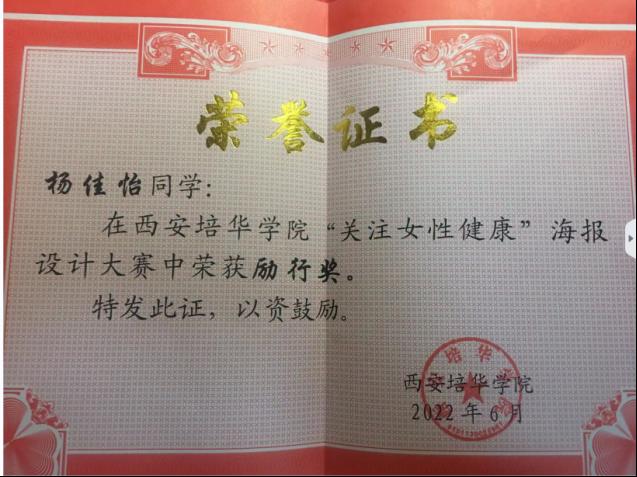 荣誉证书
杨佳怡同学：
在西安培华学院“关注女性健康”海报
设计大赛中荣获励行奖。
特发此证，以资鼓励。
西安培华学院
2022年6月